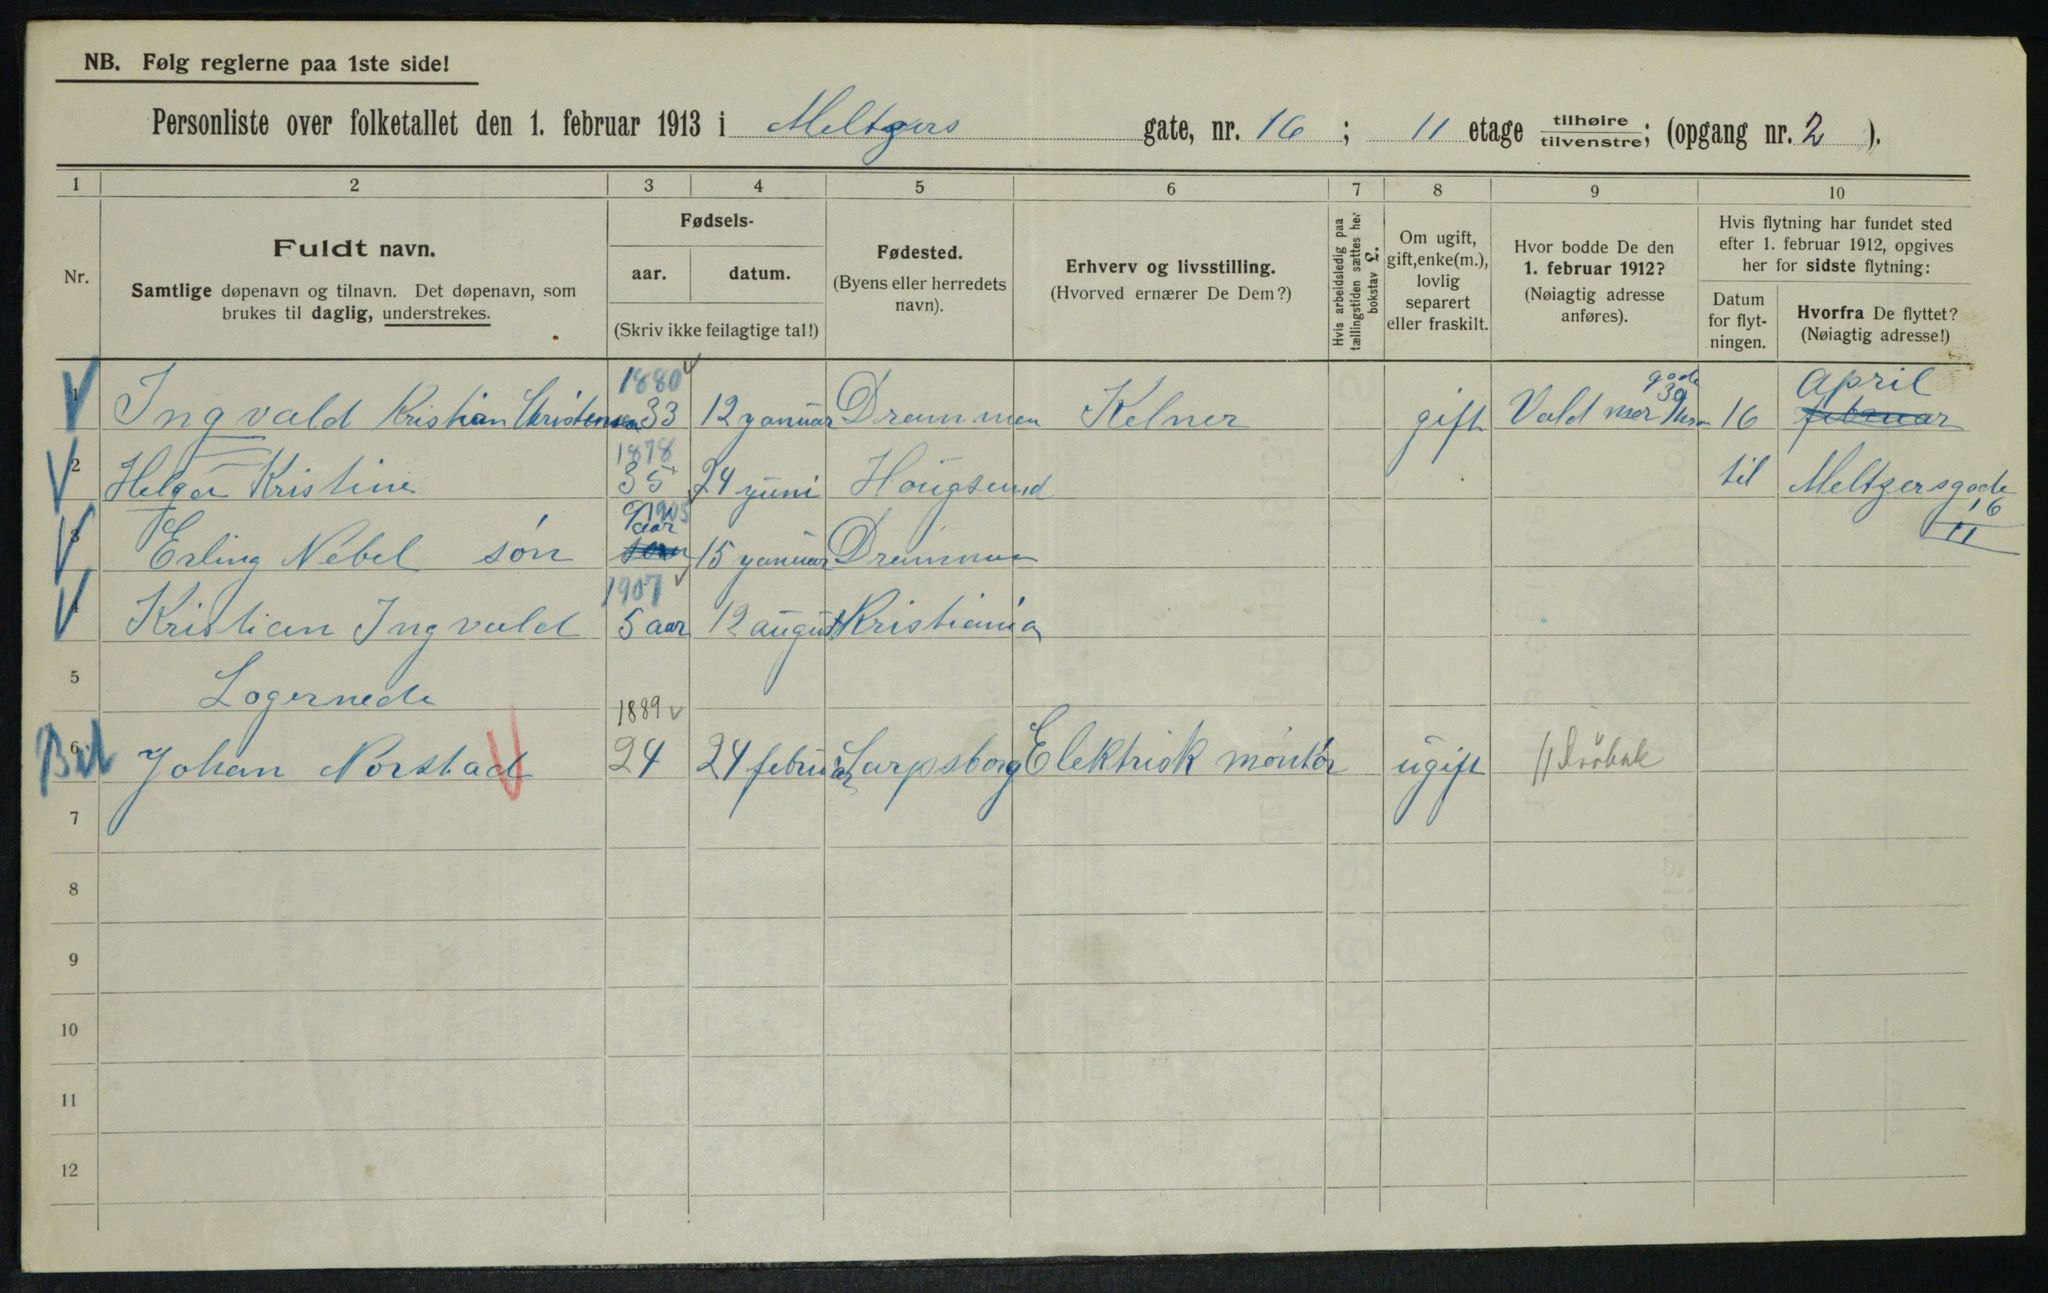 NB. Følg reglerne paa 1ste side!
Personliste over folketallet den 1. februar 1913 i Meltzers gate, nr. 16 ; 11 etage tilhøire / tilvenstre; (opgang nr. 2 ).
1 2 3 4 5 6 7 8 9 10
Nr.
Fuldt navn.
Samtlige døpenavn og tilnavn. Det døpenavn, som
brukes til daglig, understrekes.
Fødsels-
aar. datum.
(Skriv ikke feilagtige tal!)
Fødested.
(Byens eller herredets
navn).
Erhverv og livsstilling.
(Hvorved ernærer De Dem?)
Hvis arbeidsledig paa
tællingstiden sættes her
bokstav L.
Om ugift,
gift, enke(m.),
lovlig
separert
eller fraskilt.
Hvor bodde De den
1. februar 1912?
(Nøiagtig adresse
anføres).
Hvis flytning har fundet sted
efter 1. februar 1912, opgives
her for sidste flytning:
Datum
for flyt-
ningen.
Hvorfra De flyttet?
(Nøiagtig adresse!)
1880 gade april
1 Ingvald Kristian Christensen 33 12 yanuar Drammen Kelner gift Valdmer 39 16 februar
1878
2 Helga Kristine 35 24 yuni Hougsund til Meltzersgade
16
11
9 aar 1905
3 Erling Nebel søn søn 15 yanuar Drammen
1907
4 Kristian Ingvald 5 aar 12 august Kristiania
5 Logernede
1889
6 Johan Norstad 24 24 februar Sarpsborg Elektrisk montør ugift Drøbak
7
8
9
10
11
12